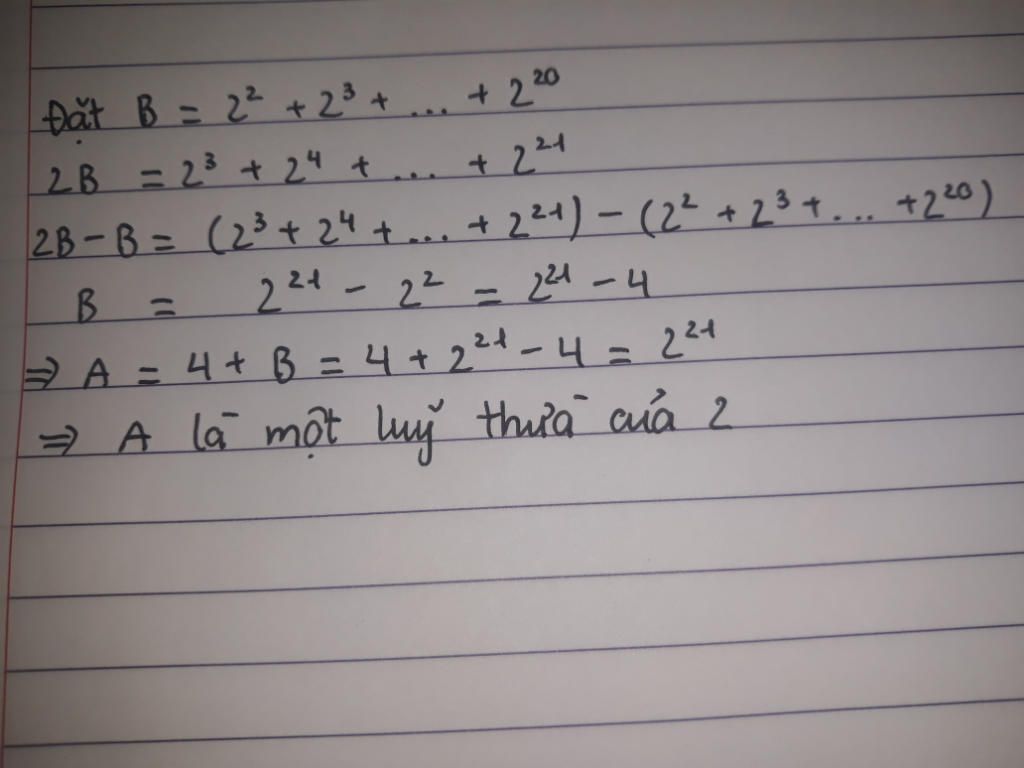 Đặt B = 2² + 2³ + ... + 2²⁰
2B = 2³ + 2⁴ + ... + 2²¹
2B - B = (2³ + 2⁴ + ... + 2²¹) - (2² + 2³ + ... + 2²⁰)
B = 2²¹ - 2² = 2²¹ - 4
⇒ A = 4 + B = 4 + 2²¹ - 4 = 2²¹
⇒ A là một luỹ thừa của 2